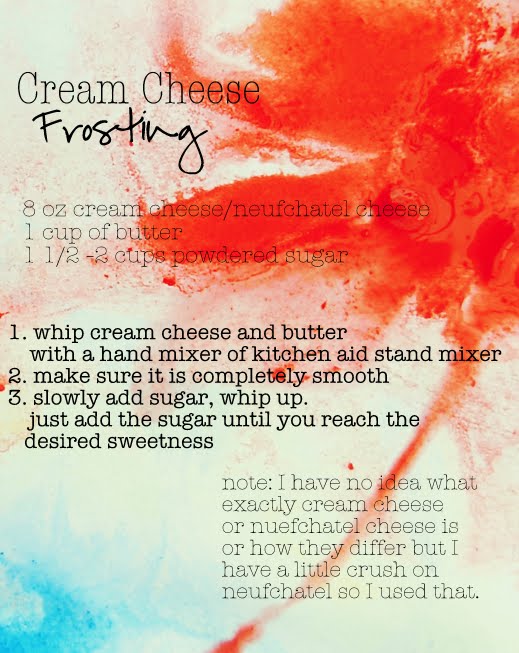 Cream Cheese
Frosting
8 oz cream cheese/neufchatel cheese
1 cup of butter
1 1/2 -2 cups powdered sugar
1. whip cream cheese and butter
with a hand mixer of kitchen aid stand mixer
2. make sure it is completely smooth
3. slowly add sugar, whip up.
just add the sugar until you reach the
desired sweetness
note: I have no idea what
exactly cream cheese
or nuefchatel cheese is
or how they differ but I
have a little crush on
neufchatel so I used that.